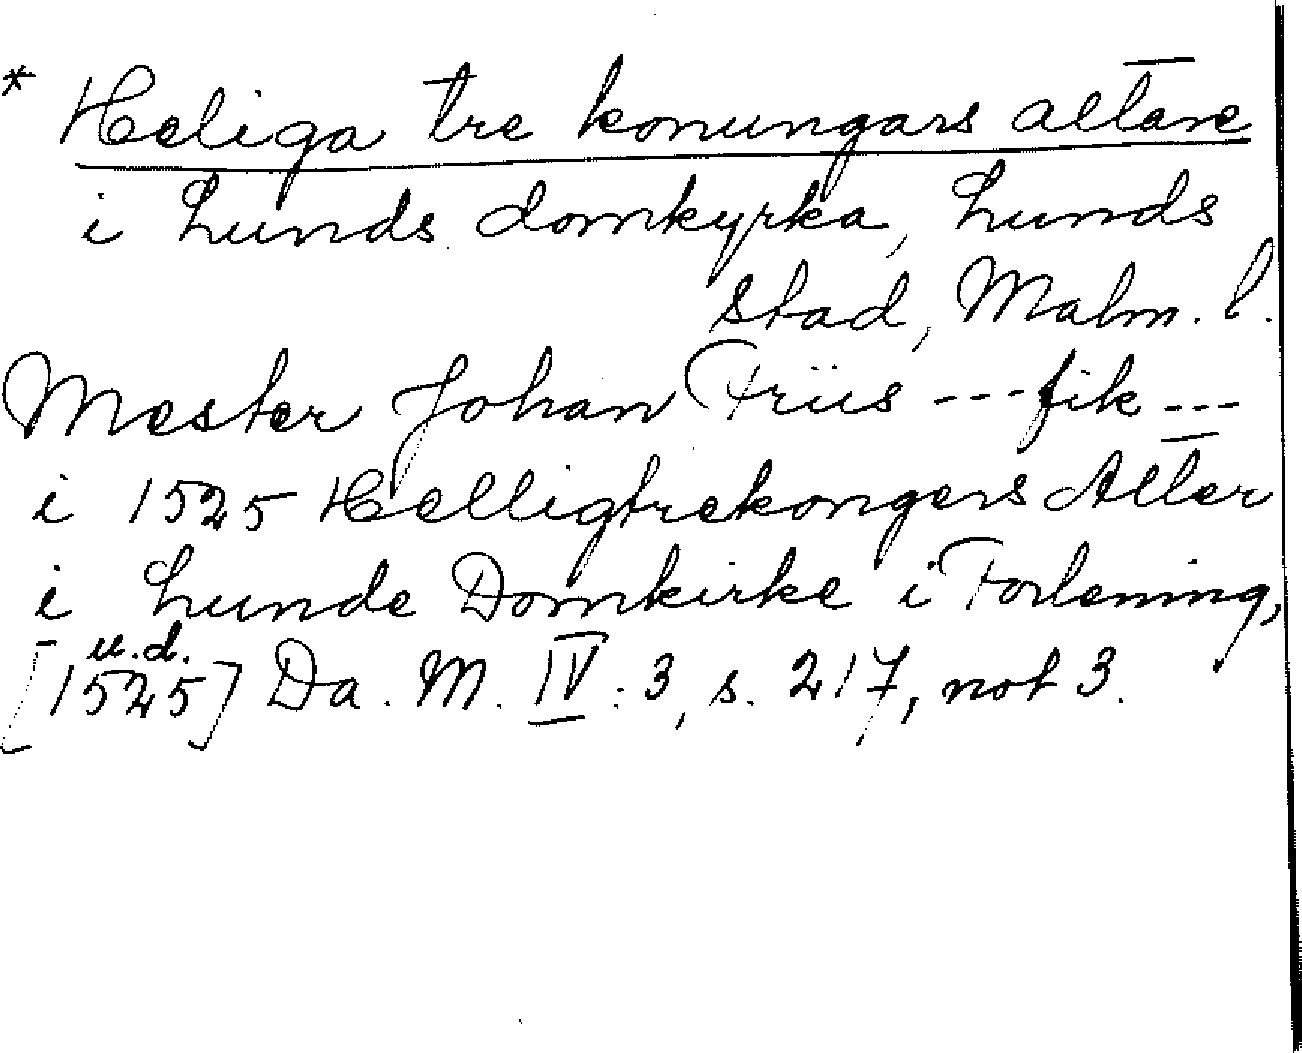 * Heliga tre konungars altare
i Lunds domkyrka, Lunds
stad, Malm. l.
Mester Johan Friis --- fik ---
i 1525 Helligtrekongers Alter
i Lunde Domkirke i Forlening,
u.d.
[1525] Da. M. IV: 3, s. 217, not 3.